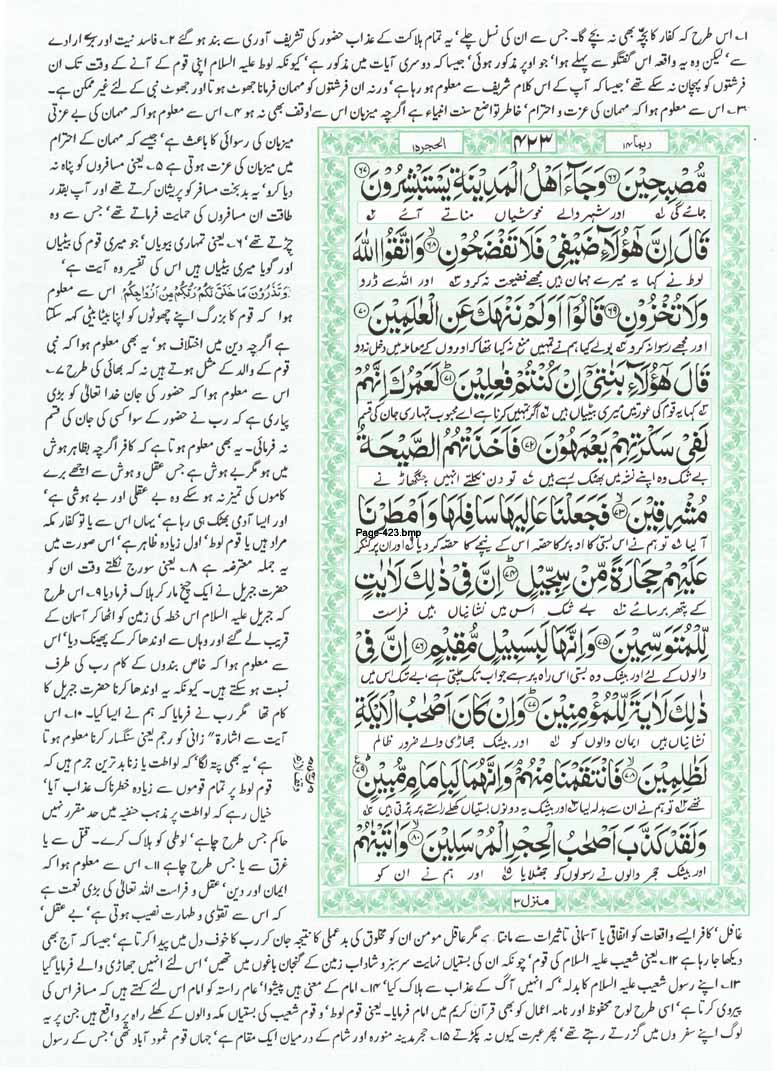 ۱۔ اس طرح کہ کفار کا بچہ بھی نہ بچے گا۔ جس سے ان کی نسل چلے، یہ تمام ہلاکت کے عذاب حضور کی تشریف آوری سے بند ہو گئے ۲۔ فاسد نیت اور برے ارادے
سے، لیکن وہ یہ واقعہ اس گفتگو سے پہلے ہوا، جو اوپر مذکور ہوئی، جیسا کہ دوسری آیات میں مذکور ہے، کیونکہ لوط علیہ السلام اپنی قوم کے آنے کے وقت تک ان
فرشتوں کو پہچان نہ سکے تھے، جیسا کہ آپ کے اس کلام شریف سے معلوم ہو رہا ہے، ورنہ ان فرشتوں کو مہمان فرمانا جھوٹ ہوتا اور جھوٹ نبی کے لئے غیر ممکن ہے۔
۳۔ اس سے معلوم ہوا کہ مہمان کی عزت و احترام، خاطر تواضع سنت انبیاء ہے اگرچہ میزبان اس سے واقف بھی نہ ہو ۴۔ اس سے معلوم ہوا کہ مہمان کی بے عزتی
ربما ۱۴
۴۲۳
الحجر ۱۵
مُّصْبِحِیْنَ ﴿۶۶﴾ وَجَآءَ اَهْلُ الْمَدِیْنَةِ یَسْتَبْشِرُوْنَ ﴿۶۷﴾
جائے گی اور شہر والے خوشیاں مناتے آئے
قَالَ اِنَّ هٰۤؤُلَآءِ ضَیْفِیْ فَلَا تَفْضَحُوْنِ ﴿۶۸﴾ وَاتَّقُوا اللّٰهَ
لوط نے کہا یہ میرے مہمان ہیں مجھے فضیحت نہ کرو اور اللہ سے ڈرو
وَلَا تُخْزُوْنِ ﴿۶۹﴾ قَالُوْۤا اَوَلَمْ نَنْهَكَ عَنِ الْعٰلَمِیْنَ ﴿۷۰﴾
اور مجھے رسوا نہ کرو بولے کیا ہم نے تمہیں منع نہ کیا تھا کہ اوروں کے معاملہ میں دخل نہ دو
قَالَ هٰۤؤُلَآءِ بَنٰتِیْۤ اِنْ كُنْتُمْ فٰعِلِیْنَ ﴿۷۱﴾ لَعَمْرُكَ اِنَّهُمْ
کہا یہ قوم کی عورتیں میری بیٹیاں ہیں اگر تمہیں کرنا ہے اے محبوب تمہاری جان کی قسم
لَفِیْ سَكْرَتِهِمْ یَعْمَهُوْنَ ﴿۷۲﴾ فَاَخَذَتْهُمُ الصَّیْحَةُ
بے شک وہ اپنے نشہ میں بھٹک رہے ہیں تو دن نکلتے انہیں چنگھاڑ نے
مُشْرِقِیْنَ ﴿۷۳﴾ فَجَعَلْنَا عَالِیَهَا سَافِلَهَا وَاَمْطَرْنَا
Page-423.bmp
آ لیا تو ہم نے اس بستی کا اوپر کا حصہ اس کے نیچے کا حصہ کر دیا اور ان پر کنکر
عَلَیْهِمْ حِجَارَةً مِّنْ سِجِّیْلٍ ﴿۷۴﴾ اِنَّ فِیْ ذٰلِكَ لَاٰیٰتٍ
کے پتھر برسائے بے شک اس میں نشانیاں ہیں فراست
لِّلْمُتَوَسِّمِیْنَ ﴿۷۵﴾ وَاِنَّهَا لَبِسَبِیْلٍ مُّقِیْمٍ ﴿۷۶﴾ اِنَّ فِیْ
والوں کے لئے اور بیشک وہ بستی اس راہ پر ہے جو اب تک چلتی ہے بے شک اس میں
ذٰلِكَ لَاٰیَةً لِّلْمُؤْمِنِیْنَ ﴿۷۷﴾ وَاِنْ كَانَ اَصْحٰبُ الْاَیْكَةِ
نشانیاں ہیں ایمان والوں کو اور بیشک جھاڑی والے ضرور ظالم
لَظٰلِمِیْنَ ﴿۷۸﴾ فَانْتَقَمْنَا مِنْهُمْ وَاِنَّهُمَا لَبِاِمَامٍ مُّبِیْنٍ ﴿۷۹﴾
تھے تو ہم نے ان سے بدلہ لیا اور بیشک یہ دونوں بستیاں کھلے راستے پر پڑتی ہیں
وَلَقَدْ كَذَّبَ اَصْحٰبُ الْحِجْرِ الْمُرْسَلِیْنَ ﴿۸۰﴾ وَاٰتَیْنٰهُمْ
اور بیشک حجر والوں نے رسولوں کو جھٹلایا اور ہم نے ان کو
منزل ۳
میزبان کی رسوائی کا باعث ہے، جیسے کہ مہمان کے احترام
میں میزبان کی عزت ہوتی ہے ۵۔ یعنی مسافروں کو پناہ نہ
دیا کرو، یہ بدبخت مسافر کو پریشان کرتے تھے اور آپ بقدر
طاقت ان مسافروں کی حمایت فرماتے تھے، جس سے وہ
چڑتے تھے، ۶۔ یعنی تمہاری بیویاں، جو میری قوم کی بیٹیاں
اور گویا میری بیٹیاں ہیں اس کی تفسیر وہ آیت ہے،
وَتَذَرُوْنَ مَا خَلَقَ لَكُمْ رَبُّكُمْ مِنْ اَزْوَاجِكُمْ، اس سے معلوم
ہوا کہ قوم کا بزرگ اپنے چھوٹوں کو اپنا بیٹا بیٹی کہہ سکتا
ہے اگرچہ دین میں اختلاف ہو، یہ بھی معلوم ہوا کہ نبی
قوم کے والد کے مثل ہوتے ہیں نہ کہ بھائی کی طرح ۷۔
اس سے معلوم ہوا کہ حضور کی جان خدا تعالیٰ کو بڑی
پیاری ہے کہ رب نے حضور کے سوا کسی کی جان کی قسم
نہ فرمائی۔ یہ بھی معلوم ہوتا ہے کہ کافر اگرچہ بظاہر ہوش
میں ہو مگر بے ہوش ہے جس عقل و ہوش سے اچھے برے
کاموں کی تمیز نہ ہو سکے وہ بے عقلی اور بے ہوشی ہے،
اور ایسا آدمی بھٹک ہی رہا ہے، یہاں اس سے یا تو کفار مکہ
مراد ہیں یا قوم لوط، اول زیادہ ظاہر ہے، اس صورت میں
یہ جملہ معترضہ ہے ۸۔ یعنی سورج نکلتے وقت ان کو
حضرت جبریل نے ایک چیخ مار کر ہلاک فرمایا ۹۔ اس طرح
کہ جبریل علیہ السلام اس خطہ کی زمین کو اٹھا کر آسمان کے
قریب لے گئے اور وہاں سے اوندھا کر کے پھینک دیا، اس
سے معلوم ہوا کہ خاص بندوں کے کام رب کی طرف
نسبت ہو سکتے ہیں۔ کیونکہ یہ اوندھا کرنا حضرت جبریل کا
کام تھا مگر رب نے فرمایا کہ ہم نے ایسا کیا۔ ۱۰۔ اس
آیت سے اشارۃً زانی کو رجم یعنی سنگسار کرنا معلوم ہوتا
ہے، یہ بھی پتہ لگا، کہ لواطت یا زنا بدترین جرم ہیں کہ
قوم لوط پر تمام قوموں سے زیادہ خطرناک عذاب آیا،
خیال رہے کہ لواطت پر مذہب حنفیہ میں حد مقرر نہیں
حاکم جس طرح چاہے، لوطی کو ہلاک کرے۔ قتل سے یا
غرق سے یا جس طرح چاہے ۱۱۔ اس سے معلوم ہوا کہ
ایمان اور دین، عقل و فراست اللہ تعالیٰ کی بڑی نعمت ہے
کہ اس سے تقویٰ و طہارت نصیب ہوتی ہے، بے عقل،
غافل، کافر ایسے واقعات کو اتفاقی یا آسمانی تاثیرات سے مانتا ہے مگر عاقل مومن ان کو مخلوق کی بدعملی کا نتیجہ جان کر رب کا خوف دل میں پیدا کرتا ہے، جیسا کہ آج بھی
دیکھا جا رہا ہے ۱۲۔ یعنی شعیب علیہ السلام کی قوم، چونکہ ان کی بستیاں نہایت سرسبز و شاداب زمین کے گنجان باغوں میں تھیں، اس لئے انہیں جھاڑی والے فرمایا گیا
۱۳۔ اپنے رسول شعیب علیہ السلام کا بدلہ، کہ انہیں آگ کے عذاب سے ہلاک کیا، ۱۴۔ امام کے معنی ہیں پیشوا، عام راستہ کو امام اس لئے کہتے ہیں کہ مسافر اس کی
پیروی کرتا ہے، اسی طرح لوح محفوظ اور نامہ اعمال کو بھی قرآن کریم میں امام فرمایا۔ یعنی قوم لوط و قوم شعیب کی بستیاں مکہ والوں کے کھلے راہ پر واقع ہیں جن پر یہ
لوگ اپنے سفروں میں گزرتے رہتے تھے، پھر عبرت کیوں نہ پکڑتے ۱۵۔ حجر مدینہ منورہ اور شام کے درمیان ایک مقام ہے، جہاں قوم ثمود آباد تھی، جس کے رسول